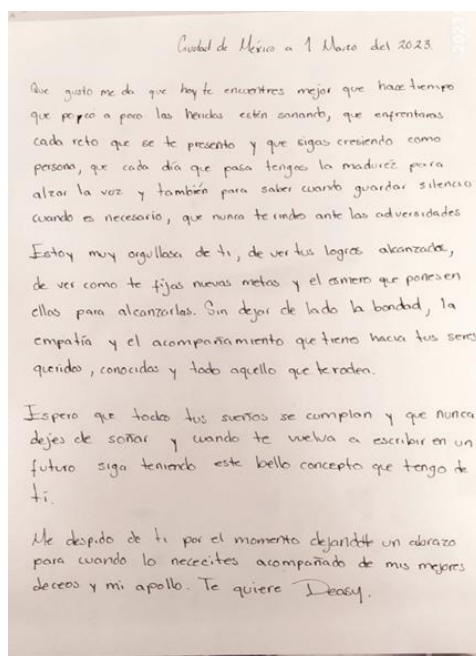 Ciudad de México a 1 Marzo del 2023.
Que gusto me da que hoy te encuentres mejor que hace tiempo
que poco a poco las heridas estén sanando, que enfrentaras
cada reto que se te presento y que sigas cresiendo como
persona, que cada día que pasa tengas la madurez para
alzar la voz y también para saber cuando guardar silencio
cuando es necesario, que nunca te rindes ante las adversidades
Estoy muy orgullosa de ti, de ver tus logros alcanzados,
de ver como te fijas nuevas metas y el esmero que pones en
ellas para alcanzarlas. Sin dejar de lado la bondad, la
empatía y el acompañamiento que tienes hacia tus seres
queridos, conocidos y todo aquello que te rodea.
Espero que todos tus sueños se cumplan y que nunca
dejes de soñar y cuando te vuelva a escribir en un
futuro siga teniendo este bello concepto que tengo de
tí.
Me despido de ti por el momento dejandote un abrazo
para cuando lo nececites acompañado de mis mejores
deceos y mi apollo. Te quiere Deasy.
2023